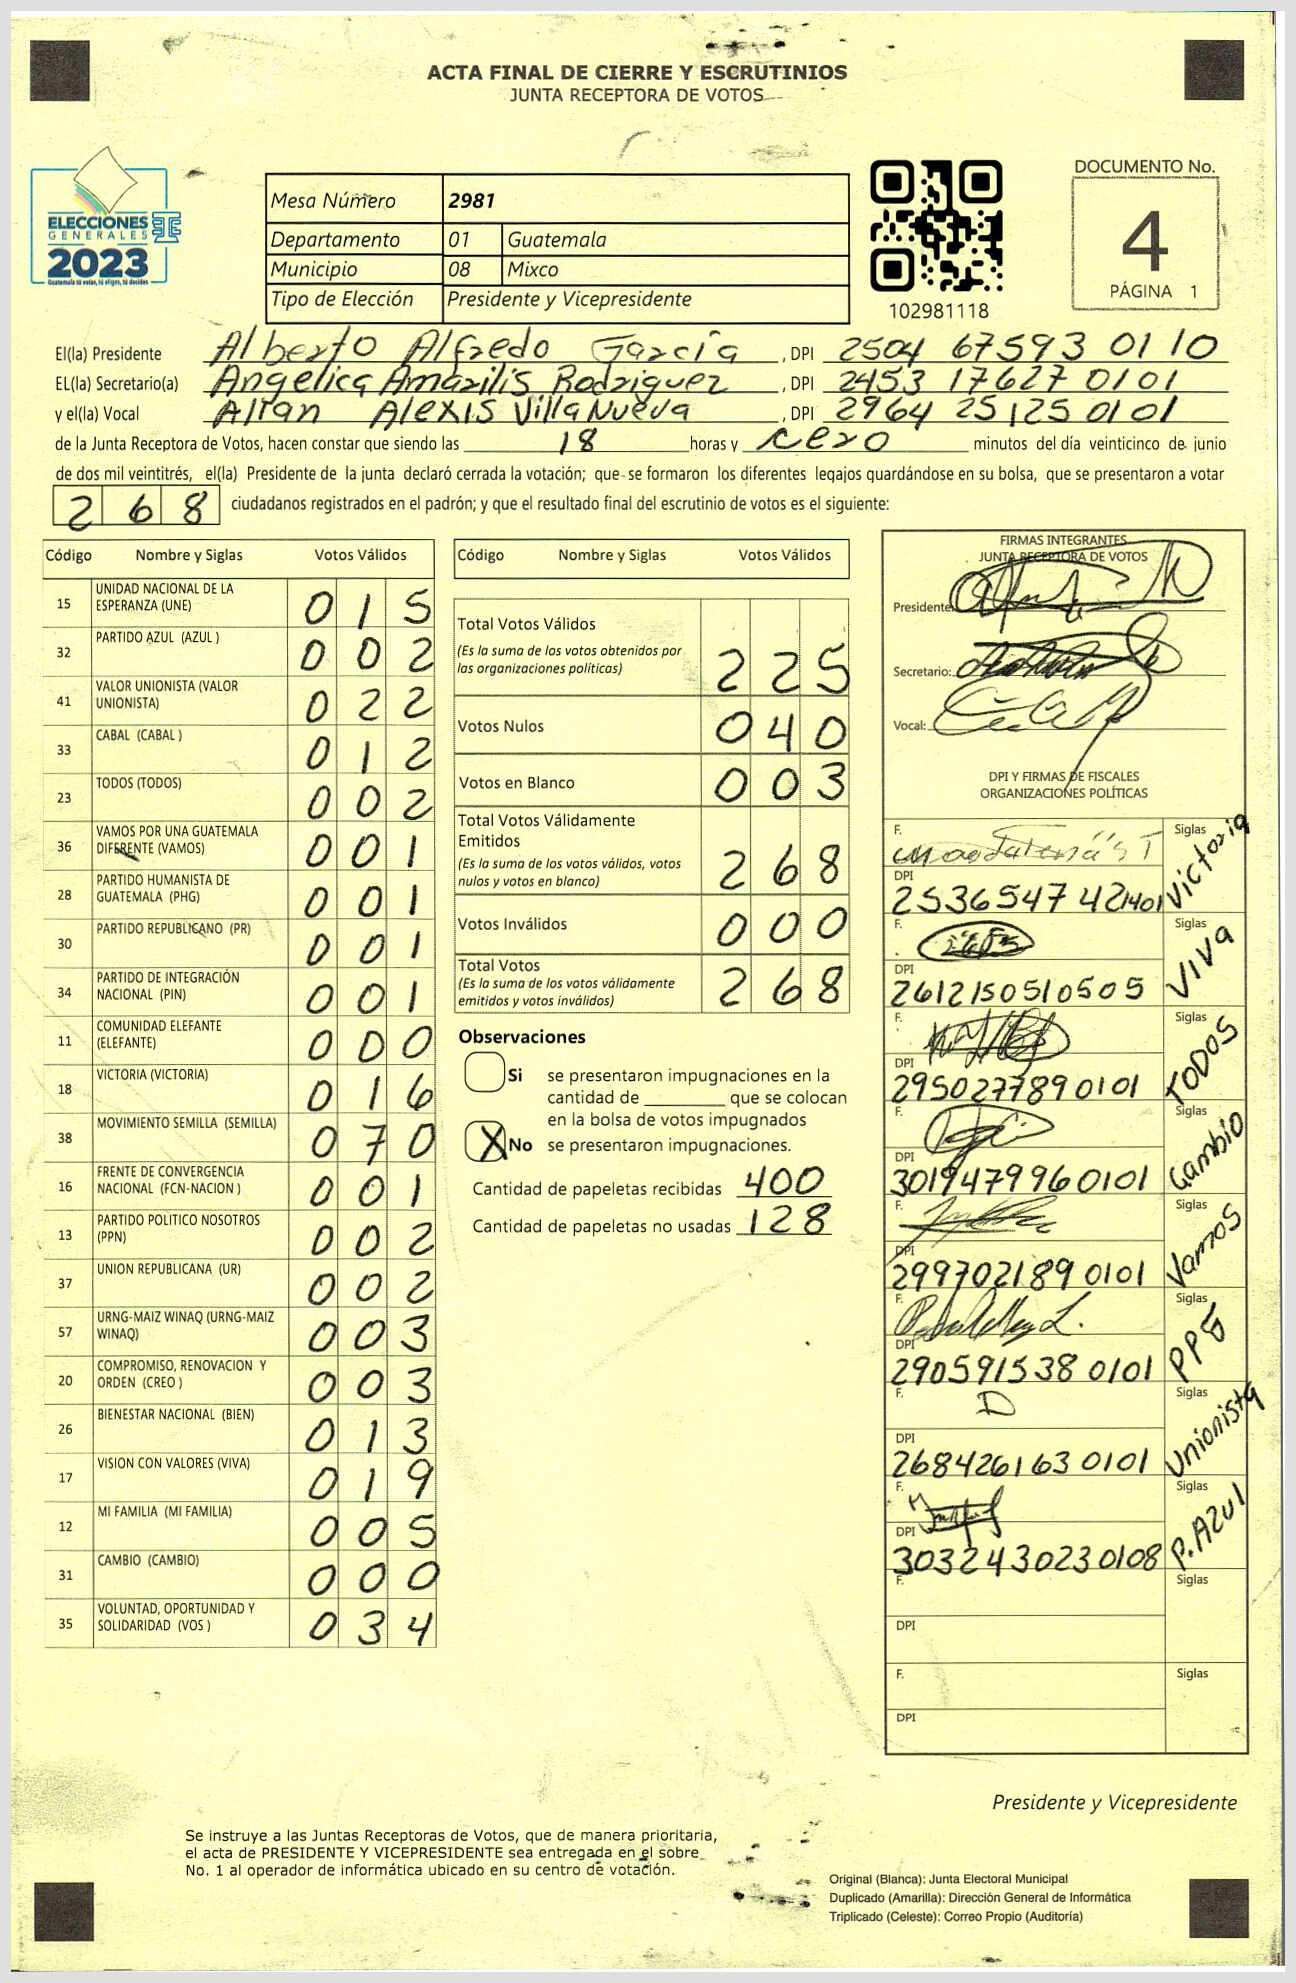 ACTA FINAL DE CIERRE Y ESCRUTINIOS
JUNTA RECEPTORA DE VOTOS
ELECCIONES
GENERALES
2023
Guatemala tú votas, tú eliges, tú decides
Mesa Número 2981
Departamento 01 Guatemala
Municipio 08 Mixco
Tipo de Elección Presidente y Vicepresidente
102981118
DOCUMENTO No.
4
PÁGINA 1
El(la) Presidente Alberto Alfredo García , DPI 2504 67593 0110
EL(la) Secretario(a) Angelica Amarilis Rodriguez , DPI 2453 17627 0101
y el(la) Vocal Allan Alexis Villanueva , DPI 2964 25125 0101
de la Junta Receptora de Votos, hacen constar que siendo las 18 horas y cero minutos del día veinticinco de junio
de dos mil veintitrés, el(la) Presidente de la junta declaró cerrada la votación; que se formaron los diferentes legajos guardándose en su bolsa, que se presentaron a votar
268 ciudadanos registrados en el padrón; y que el resultado final del escrutinio de votos es el siguiente:
Código Nombre y Siglas Votos Válidos
15 UNIDAD NACIONAL DE LA ESPERANZA (UNE) 015
32 PARTIDO AZUL (AZUL ) 002
41 VALOR UNIONISTA (VALOR UNIONISTA) 022
33 CABAL (CABAL ) 012
23 TODOS (TODOS) 002
36 VAMOS POR UNA GUATEMALA DIFERENTE (VAMOS) 001
28 PARTIDO HUMANISTA DE GUATEMALA (PHG) 001
30 PARTIDO REPUBLICANO (PR) 001
34 PARTIDO DE INTEGRACIÓN NACIONAL (PIN) 001
11 COMUNIDAD ELEFANTE (ELEFANTE) 000
18 VICTORIA (VICTORIA) 016
38 MOVIMIENTO SEMILLA (SEMILLA) 070
16 FRENTE DE CONVERGENCIA NACIONAL (FCN-NACION ) 001
13 PARTIDO POLITICO NOSOTROS (PPN) 002
37 UNION REPUBLICANA (UR) 002
57 URNG-MAIZ WINAQ (URNG-MAIZ WINAQ) 003
20 COMPROMISO, RENOVACION Y ORDEN (CREO ) 003
26 BIENESTAR NACIONAL (BIEN) 013
17 VISION CON VALORES (VIVA) 019
12 MI FAMILIA (MI FAMILIA) 005
31 CAMBIO (CAMBIO) 000
35 VOLUNTAD, OPORTUNIDAD Y SOLIDARIDAD (VOS ) 034
Código Nombre y Siglas Votos Válidos
Total Votos Válidos 225
(Es la suma de los votos obtenidos por
las organizaciones políticas)
Votos Nulos 040
Votos en Blanco 003
Total Votos Válidamente
Emitidos 268
(Es la suma de los votos válidos, votos
nulos y votos en blanco)
Votos Inválidos 000
Total Votos 268
(Es la suma de los votos válidamente
emitidos y votos inválidos)
Observaciones
Si se presentaron impugnaciones en la
cantidad de ________ que se colocan
en la bolsa de votos impugnados
X No se presentaron impugnaciones.
Cantidad de papeletas recibidas 400
Cantidad de papeletas no usadas 128
FIRMAS INTEGRANTES
JUNTA RECEPTORA DE VOTOS
Presidente:
Secretario:
Vocal:
DPI Y FIRMAS DE FISCALES
ORGANIZACIONES POLÍTICAS
F. Siglas Victoria
DPI 2536547421401
F. Siglas VIVA
DPI 2612150510505
F. Siglas TODOS
DPI 2950277890101
F. Siglas Cambio
DPI 3019479960101
F. Siglas Vamos
DPI 2997021890101
F. Siglas
DPI 2905915380101
F. D Siglas Unionista
DPI 2684261630101
F. Siglas P. Azul
DPI 3032430230108
F. Siglas
DPI
F. Siglas
DPI
Presidente y Vicepresidente
Se instruye a las Juntas Receptoras de Votos, que de manera prioritaria,
el acta de PRESIDENTE Y VICEPRESIDENTE sea entregada en el sobre
No. 1 al operador de informática ubicado en su centro de votación.
Original (Blanca): Junta Electoral Municipal
Duplicado (Amarilla): Dirección General de Informática
Triplicado (Celeste): Correo Propio (Auditoría)